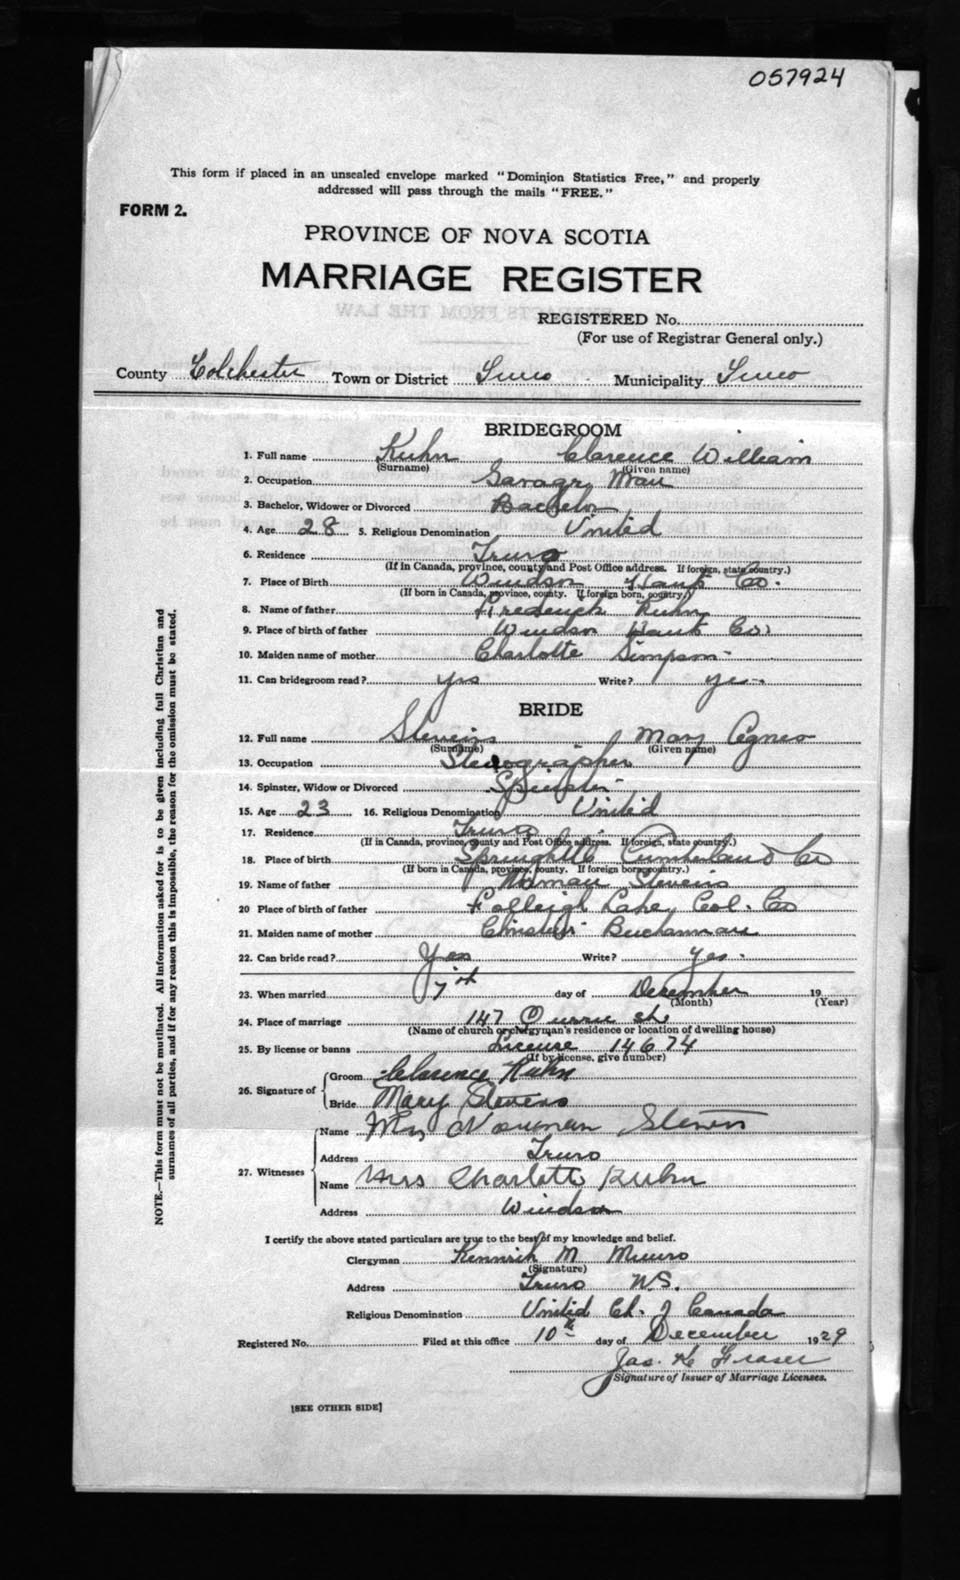 057924
This form if placed in an unsealed envelope marked "Dominion Statistics Free," and properly
addressed will pass through the mails "FREE."
FORM 2.
PROVINCE OF NOVA SCOTIA
MARRIAGE REGISTER
REGISTERED No.
(For use of Registrar General only.)
County Colchester Town or District Truro Municipality Truro
BRIDEGROOM
1. Full name Kuhn Clarence William
(Surname) (Given name)
2. Occupation Garage Man
3. Bachelor, Widower or Divorced Bachelor
4. Age 28 5. Religious Denomination United
6. Residence Truro
(If in Canada, province, county and Post Office address. If foreign, state country.)
7. Place of Birth Windsor Hants Co.
(If born in Canada, province, county. If foreign born, country.)
8. Name of father Frederick Kuhn
9. Place of birth of father Windsor Hants Co.
10. Maiden name of mother Charlotte Simpson
11. Can bridegroom read? yes Write? yes
BRIDE
12. Full name Stevens Mary Agnes
(Surname) (Given name)
13. Occupation Stenographer
14. Spinster, Widow or Divorced Spinster
15. Age 23 16. Religious Denomination United
17. Residence Truro
(If in Canada, province, county and Post Office address. If foreign, state country.)
18. Place of birth Springhill Cumberland Co
(If born in Canada, province, county. If foreign born, country.)
19. Name of father Norman Stevens
20 Place of birth of father Folleigh Lake, Col. Co
21. Maiden name of mother Buchanan
22. Can bride read? Yes Write? yes.
23. When married 7th day of December 19
(Month) (Year)
24. Place of marriage 147 Queen St.
(Name of church or clergyman's residence or location of dwelling house)
25. By license or banns License 14674
(If by license, give number)
26. Signature of
Groom Clarence Kuhn
Bride Mary Stevens
27. Witnesses
Name Mrs Norman Stevens
Address Truro
Name Mrs Charlotte Kuhn
Address Windsor
I certify the above stated particulars are true to the best of my knowledge and belief.
Clergyman M Munro
(Signature)
Address Truro N.S.
Religious Denomination United Ch. of Canada
Registered No. Filed at this office 10th day of December 1929
Jas. K Fraser
Signature of Issuer of Marriage Licenses.
[SEE OTHER SIDE]
NOTE.—This form must not be mutilated. All information asked for is to be given including full Christian and
surnames of all parties, and if for any reason this is impossible, the reason for the omission must be stated.